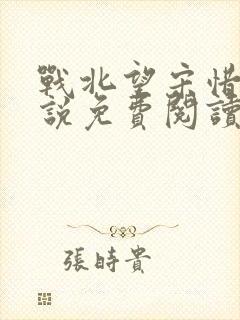 戰北望宋惜
說免費閱讀
張時貴